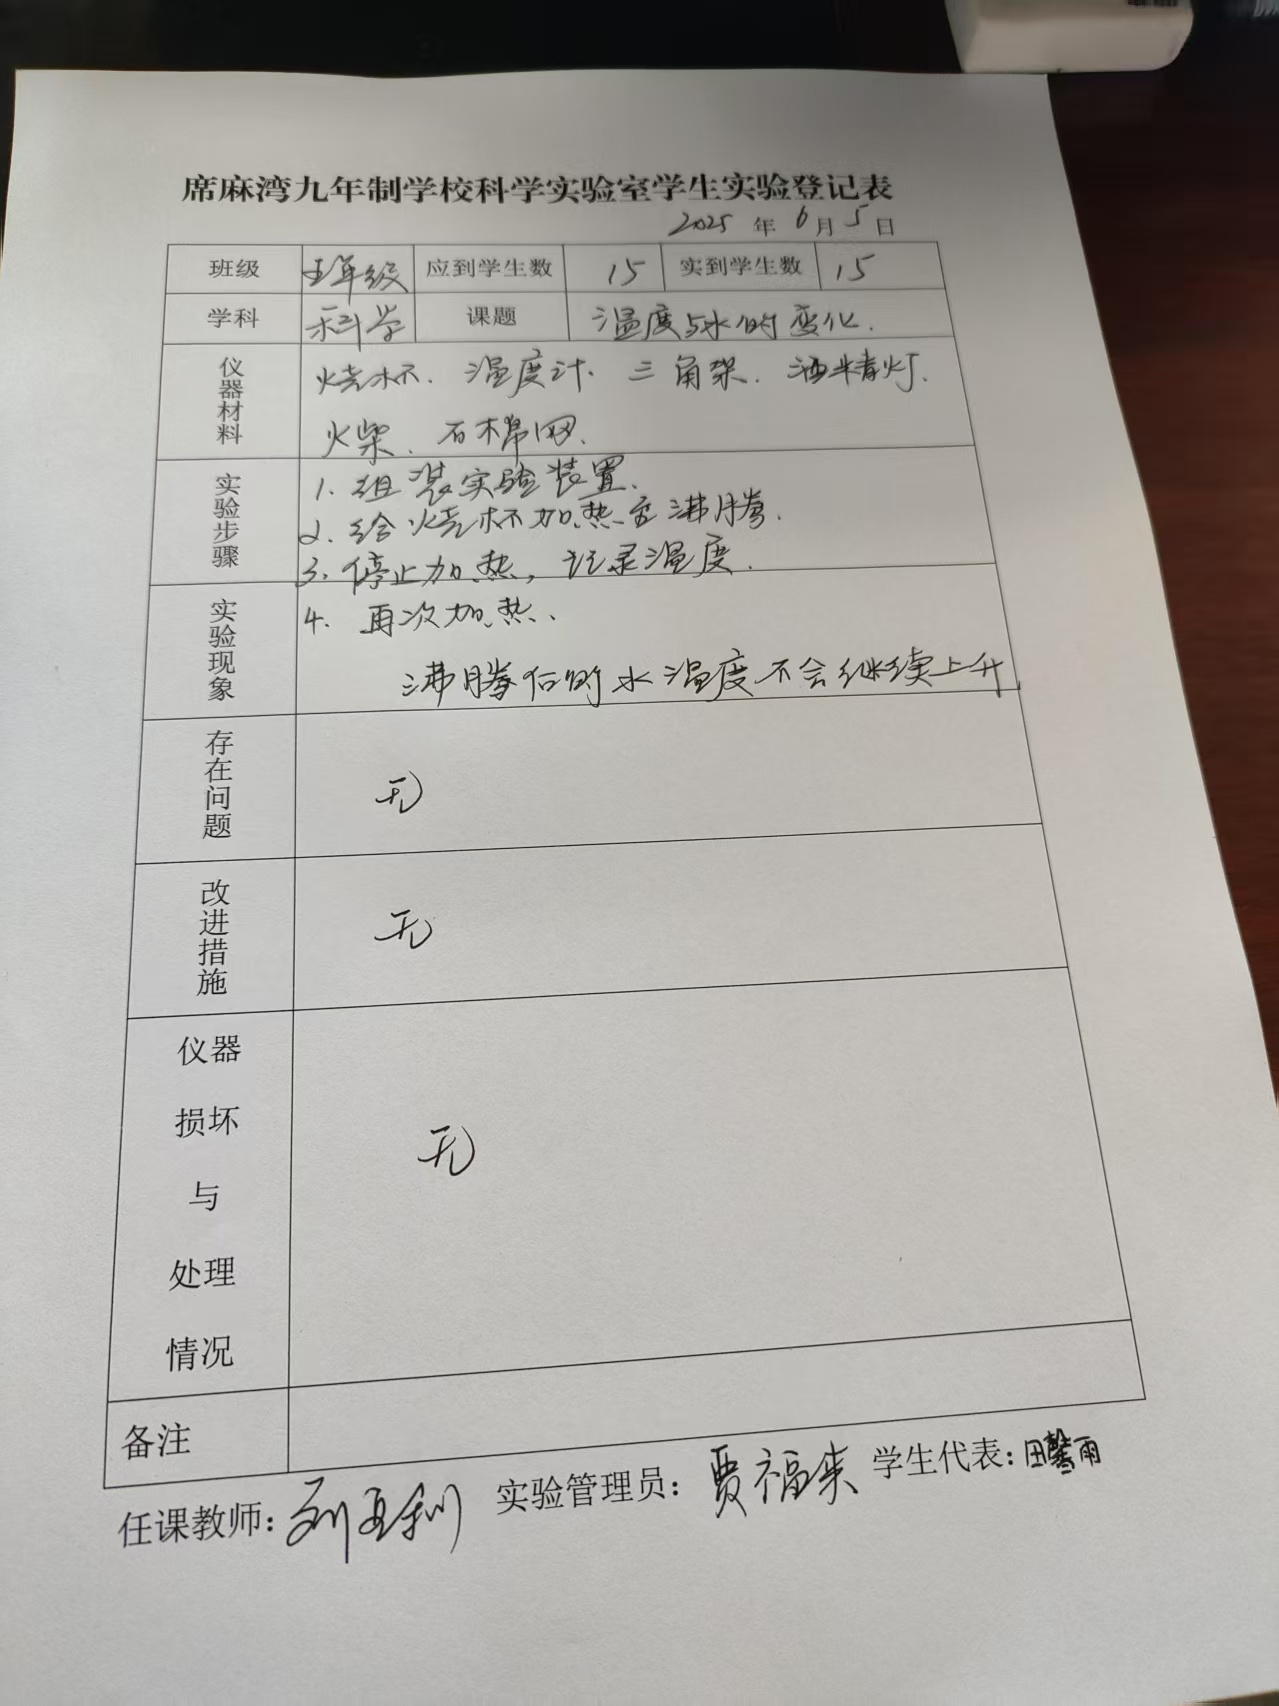 席麻湾九年制学校科学实验室学生实验登记表
2025 年 6 月 5 日
班级 五年级 应到学生数 15 实到学生数 15
学科 科学 课题 温度与水的变化.
仪器材料 烧杯. 温度计. 三角架. 酒精灯.
火柴. 石棉网.
实验步骤 1. 组装实验装置.
2. 给烧杯加热至沸腾.
3. 停止加热, 记录温度.
4. 再次加热.
实验现象 沸腾后的水温度不会继续上升
存在问题 无
改进措施 无
仪器
损坏
与
处理
情况
无
备注
任课教师: 刘 利 实验管理员: 贾福来 学生代表: 田馨雨